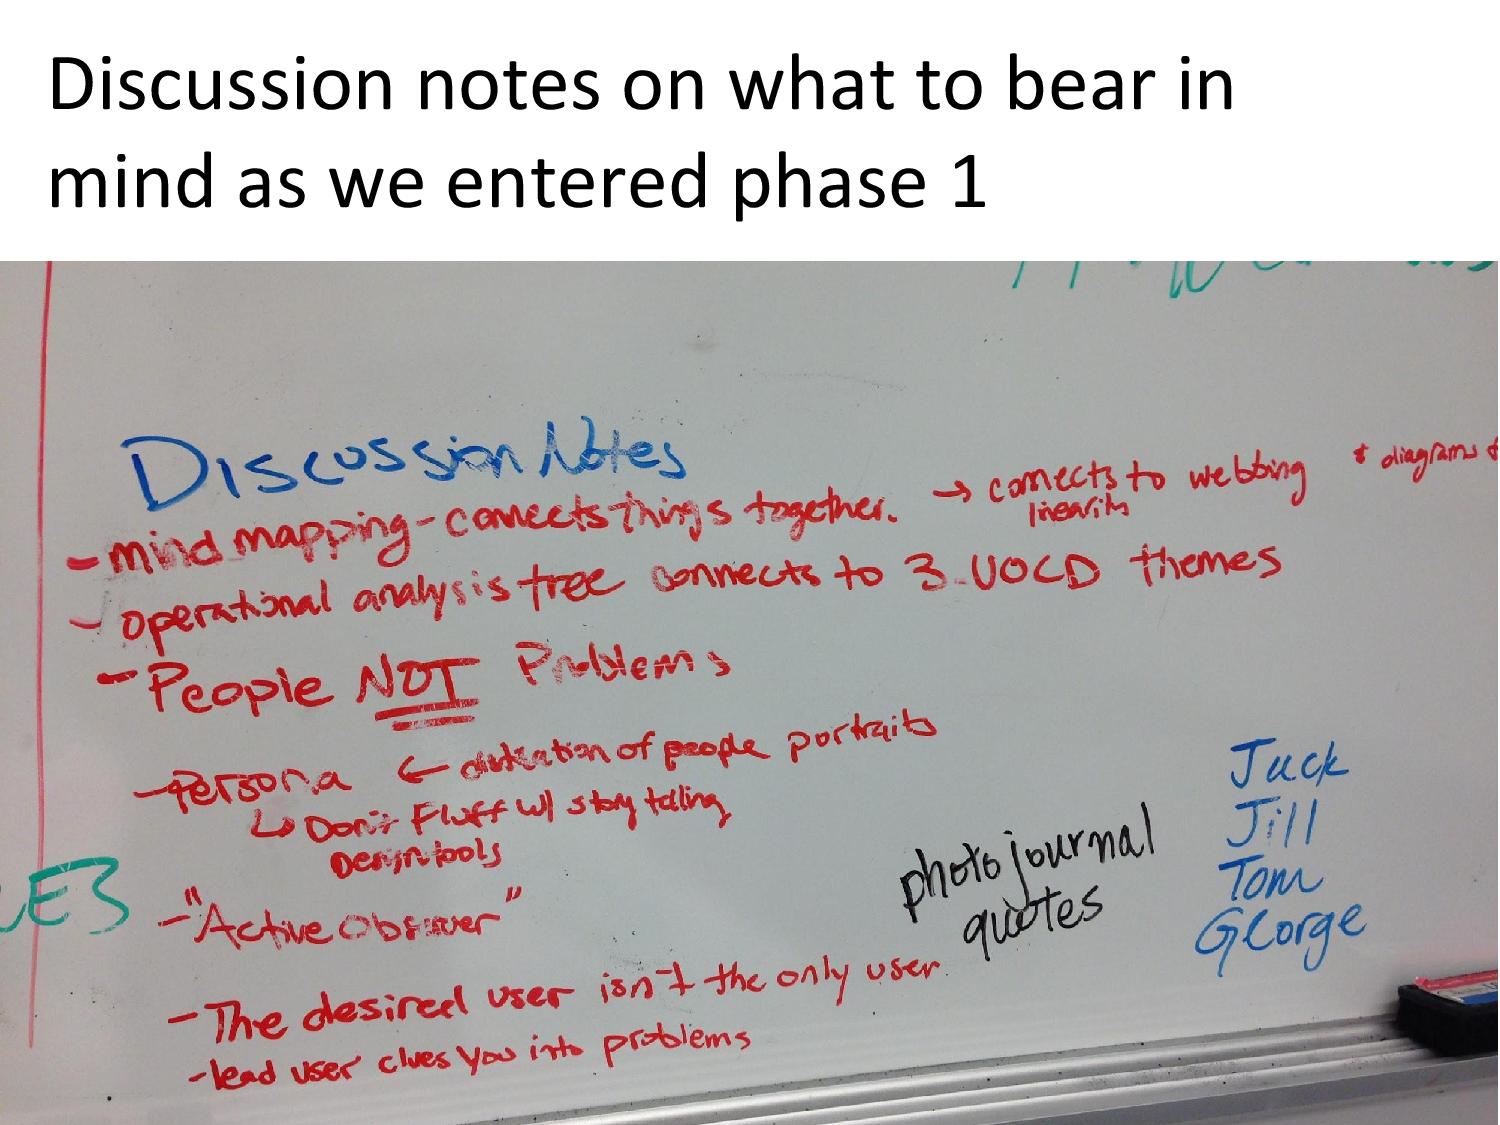 Discussion notes on what to bear in
mind as we entered phase 1
Discussion Notes
- mind mapping - connects things together. → connects to webbing & diagrams &
linearity
- operational analysis tree connects to 3 UOCD themes
- People NOT Problems
- Persona ← of people portraits
↳ Don't Fluff w/ story telling
Design tools
- "Active Observer"
- The desired user isn't the only user
- lead user clues you into problems
photo journal
quotes
Jack
Jill
Tom
George